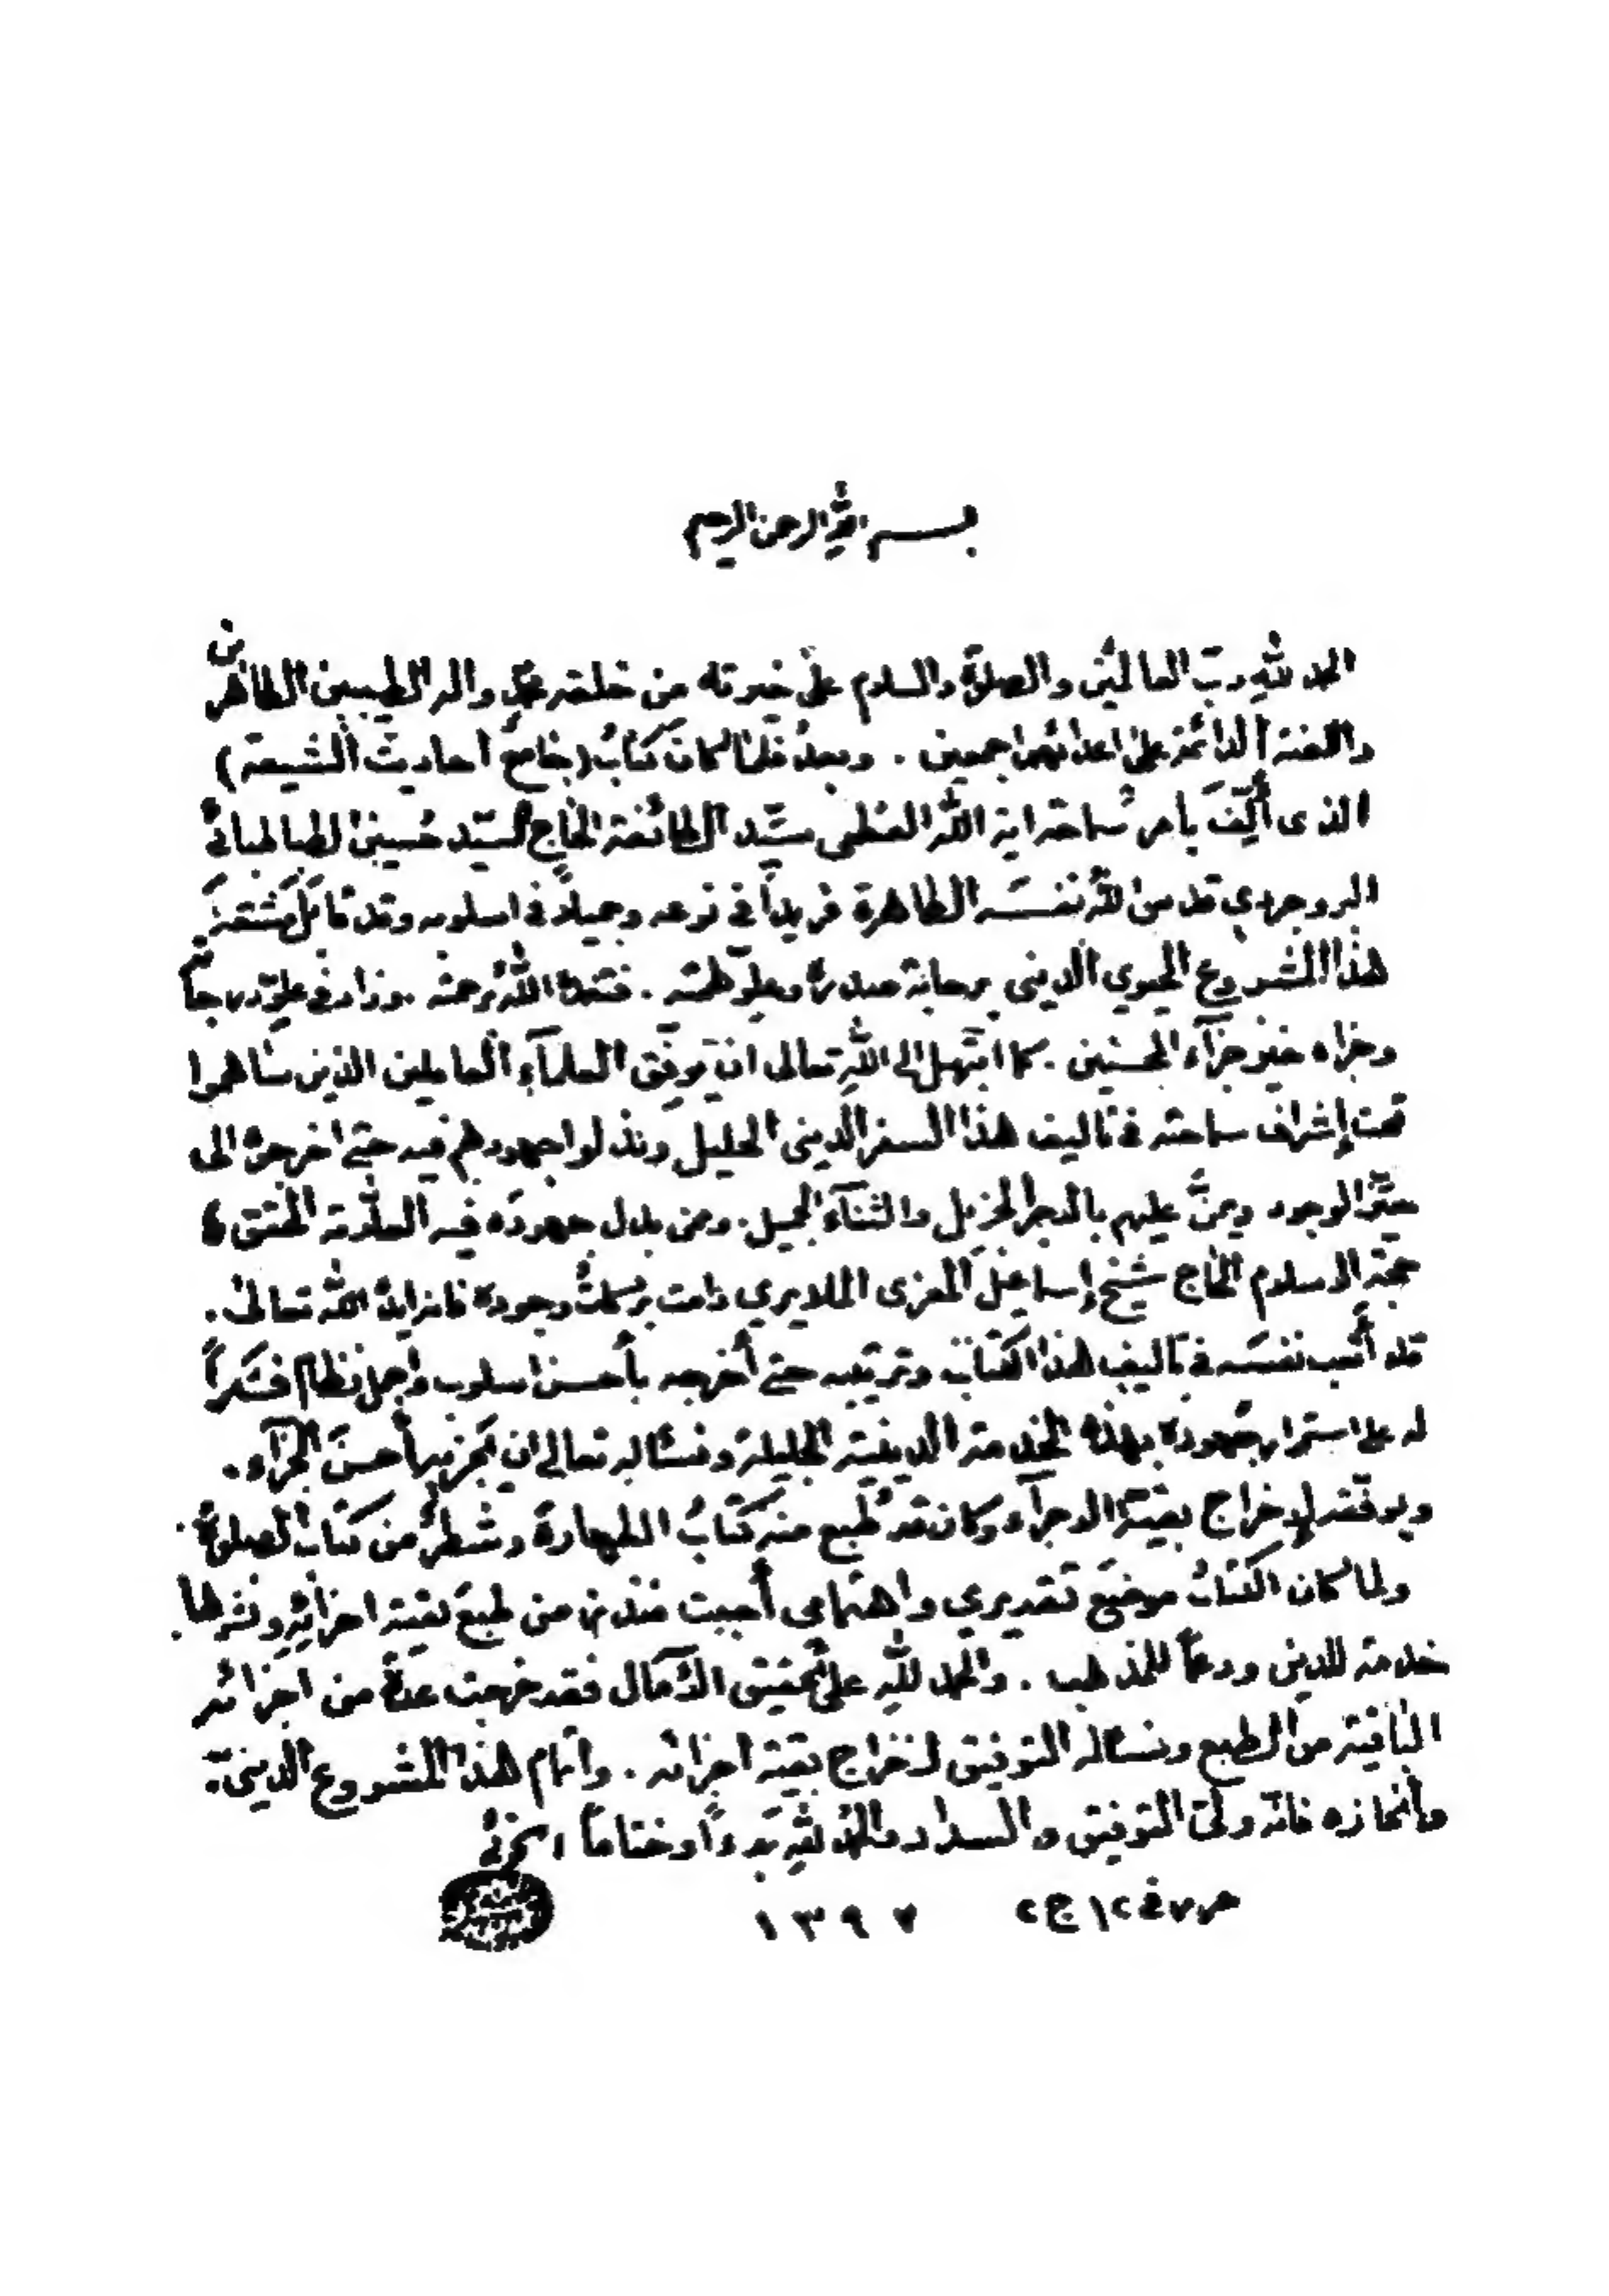 بسم الله الرحمن الرحيم
الحمد لله ربّ العالمين والصلوة والسلام على خيرته من خلقه محمّد واله الطيبين الطاهرين
واللعنة الدائمة على اعدائهم اجمعين . وبعد فلمّا كان كتابُ (جامع أحاديث الشيعة)
الذى أُلِّفَ بأمر سماحة اية الله العظمى سيّد الطائفة الحاج السيّد حسين الطباطبائي
البروجردي قدس الله نفسَه الطاهرة فريداً في نوعه وجميلاً في اسلوبه وقد قابَلَ مشقّة
هذا المشروع الحيوي الديني برحابة صدره وعلوّ همّته . فتغمّده الله برحمته وزاد في علوّ درجاته
وجزاه خير جزآء المحسنين . كما ابتهل إلى الله تعالى ان يوفّق العلمآء العاملين الذين ساهموا
تحت إشراف سماحته في تاليف هذا السفر الديني الجليل وبذلوا جهودهم فيه حتى اخرجوه الى
حيّز الوجود ويمنَّ عليهم بالاجر الجزيل والثنآء الجميل . ومن بذل جهوده فيه العلّامة المتتقى
حجة الاسلام الحاج شيخ إسماعيل المعزى الملايري دامت بركاتُ وجوده فانه ايّده الله تعالى .
قد أتعب نفسَه في تاليف هذا الكتاب وترتيبه حتى أخرجه بأحسن اسلوب واجمل نظام فشكراً
له على استمرار جهوده بهذه الخدمة الدينية الجليلة ونسئاله تعالى ان يجزيه أحسنَ الجزآء .
ويوفقه لإخراج بقيّة الاجزآء وكان قد طُبع منه كتابُ الطهارة وشطرٌ من كتاب الصلوة .
ولما كان الكتابُ موضع تقديري واهتمامي أحببت من طبع بقية اجزائِه ونشرها .
خدمة للدين ودعماً للمذهب . والحمد لله على تحقيق الآمال فقد خرجت عدةٌ من اجزائه
الباقية من الطبع ونسئاله التوفيق لإخراج بقية اجزائه . واتمام هذا المشروع الدينيّ .
وانجازه فانه وليّ التوفيق والسداد والحمد لله بدءاً وختاماً الخوئي
في ١٢ ج٢ ١٣٩٧